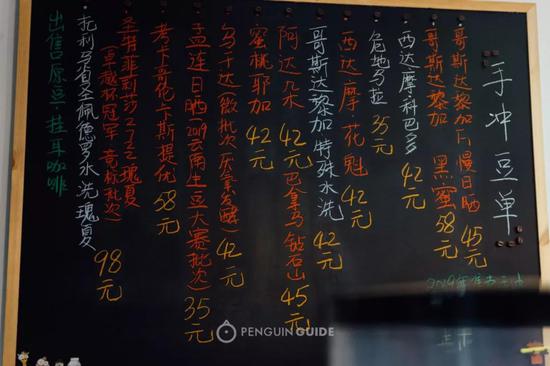 手冲豆单
哥斯达黎加 慢日晒 45元
哥斯达黎加 黑蜜 58元
西达摩·科巴多 42元
危地马拉 35元
西达摩·花魁 42元
哥斯达黎加特殊水洗 42元
阿达几米 42元
巴拿马钻石山 45元
蜜桃耶加 42元
乌干达(微批次厌氧发酵) 42元
孟连日晒(2019云南生豆大赛批次) 35元
考卡哥伦卡斯提优 58元
圣特菲莉莎2722瑰夏
(卓越杯冠军 竞标批次)
托利马省圣佩德罗水洗瑰夏 98元
出售原豆·挂耳咖啡
PENGUIN GUIDE